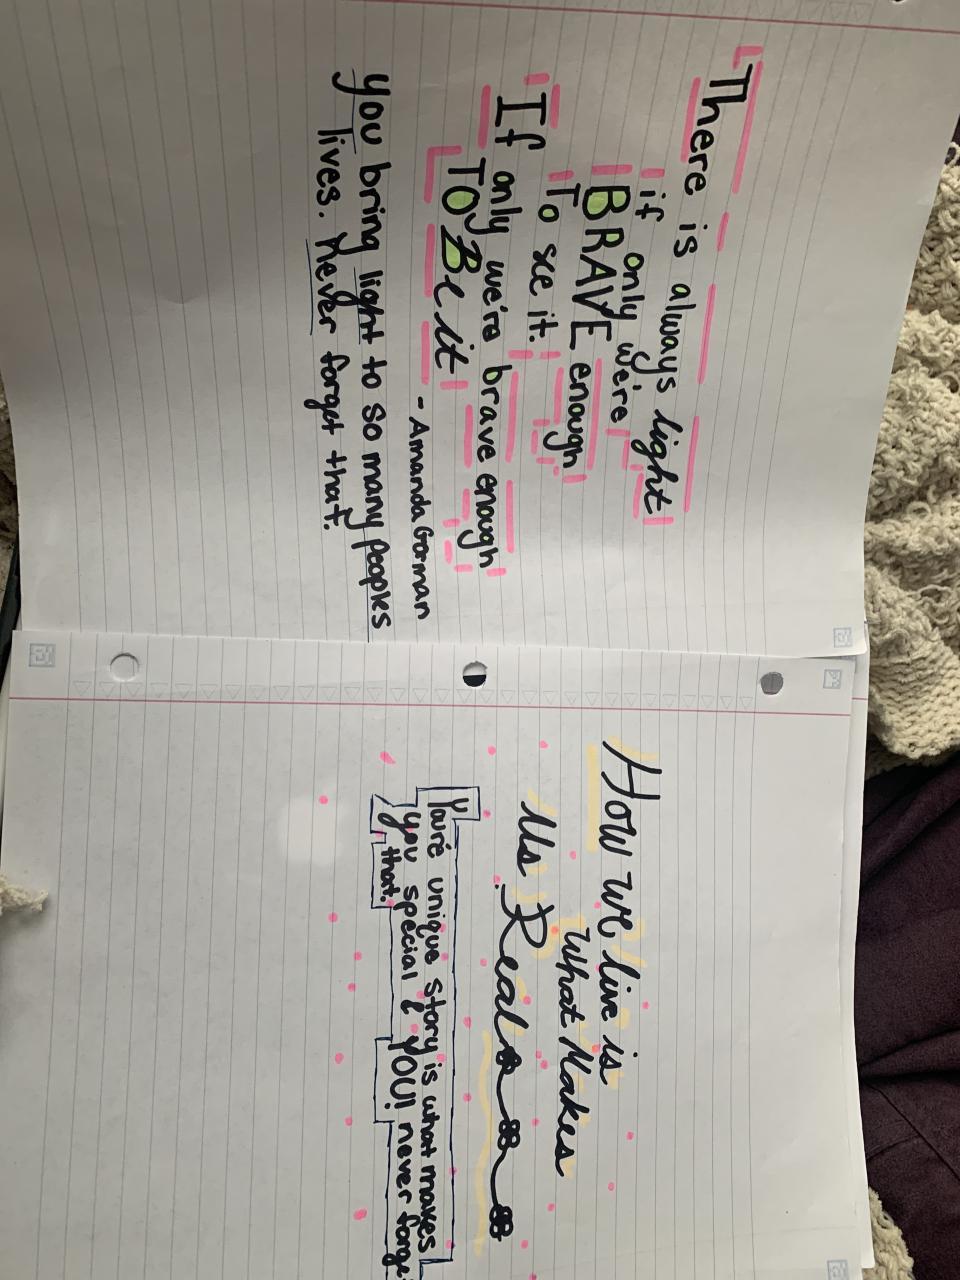 There is always light
if only we're
BRAVE enough
To see it.
If only we're brave enough
TO Be it
- Amanda Gorman
you bring light to so many peoples
lives. Never forget that.
How we live is
What Makes
Us Real
Youre unique story is what makes
you special & YOU! never forge
that.